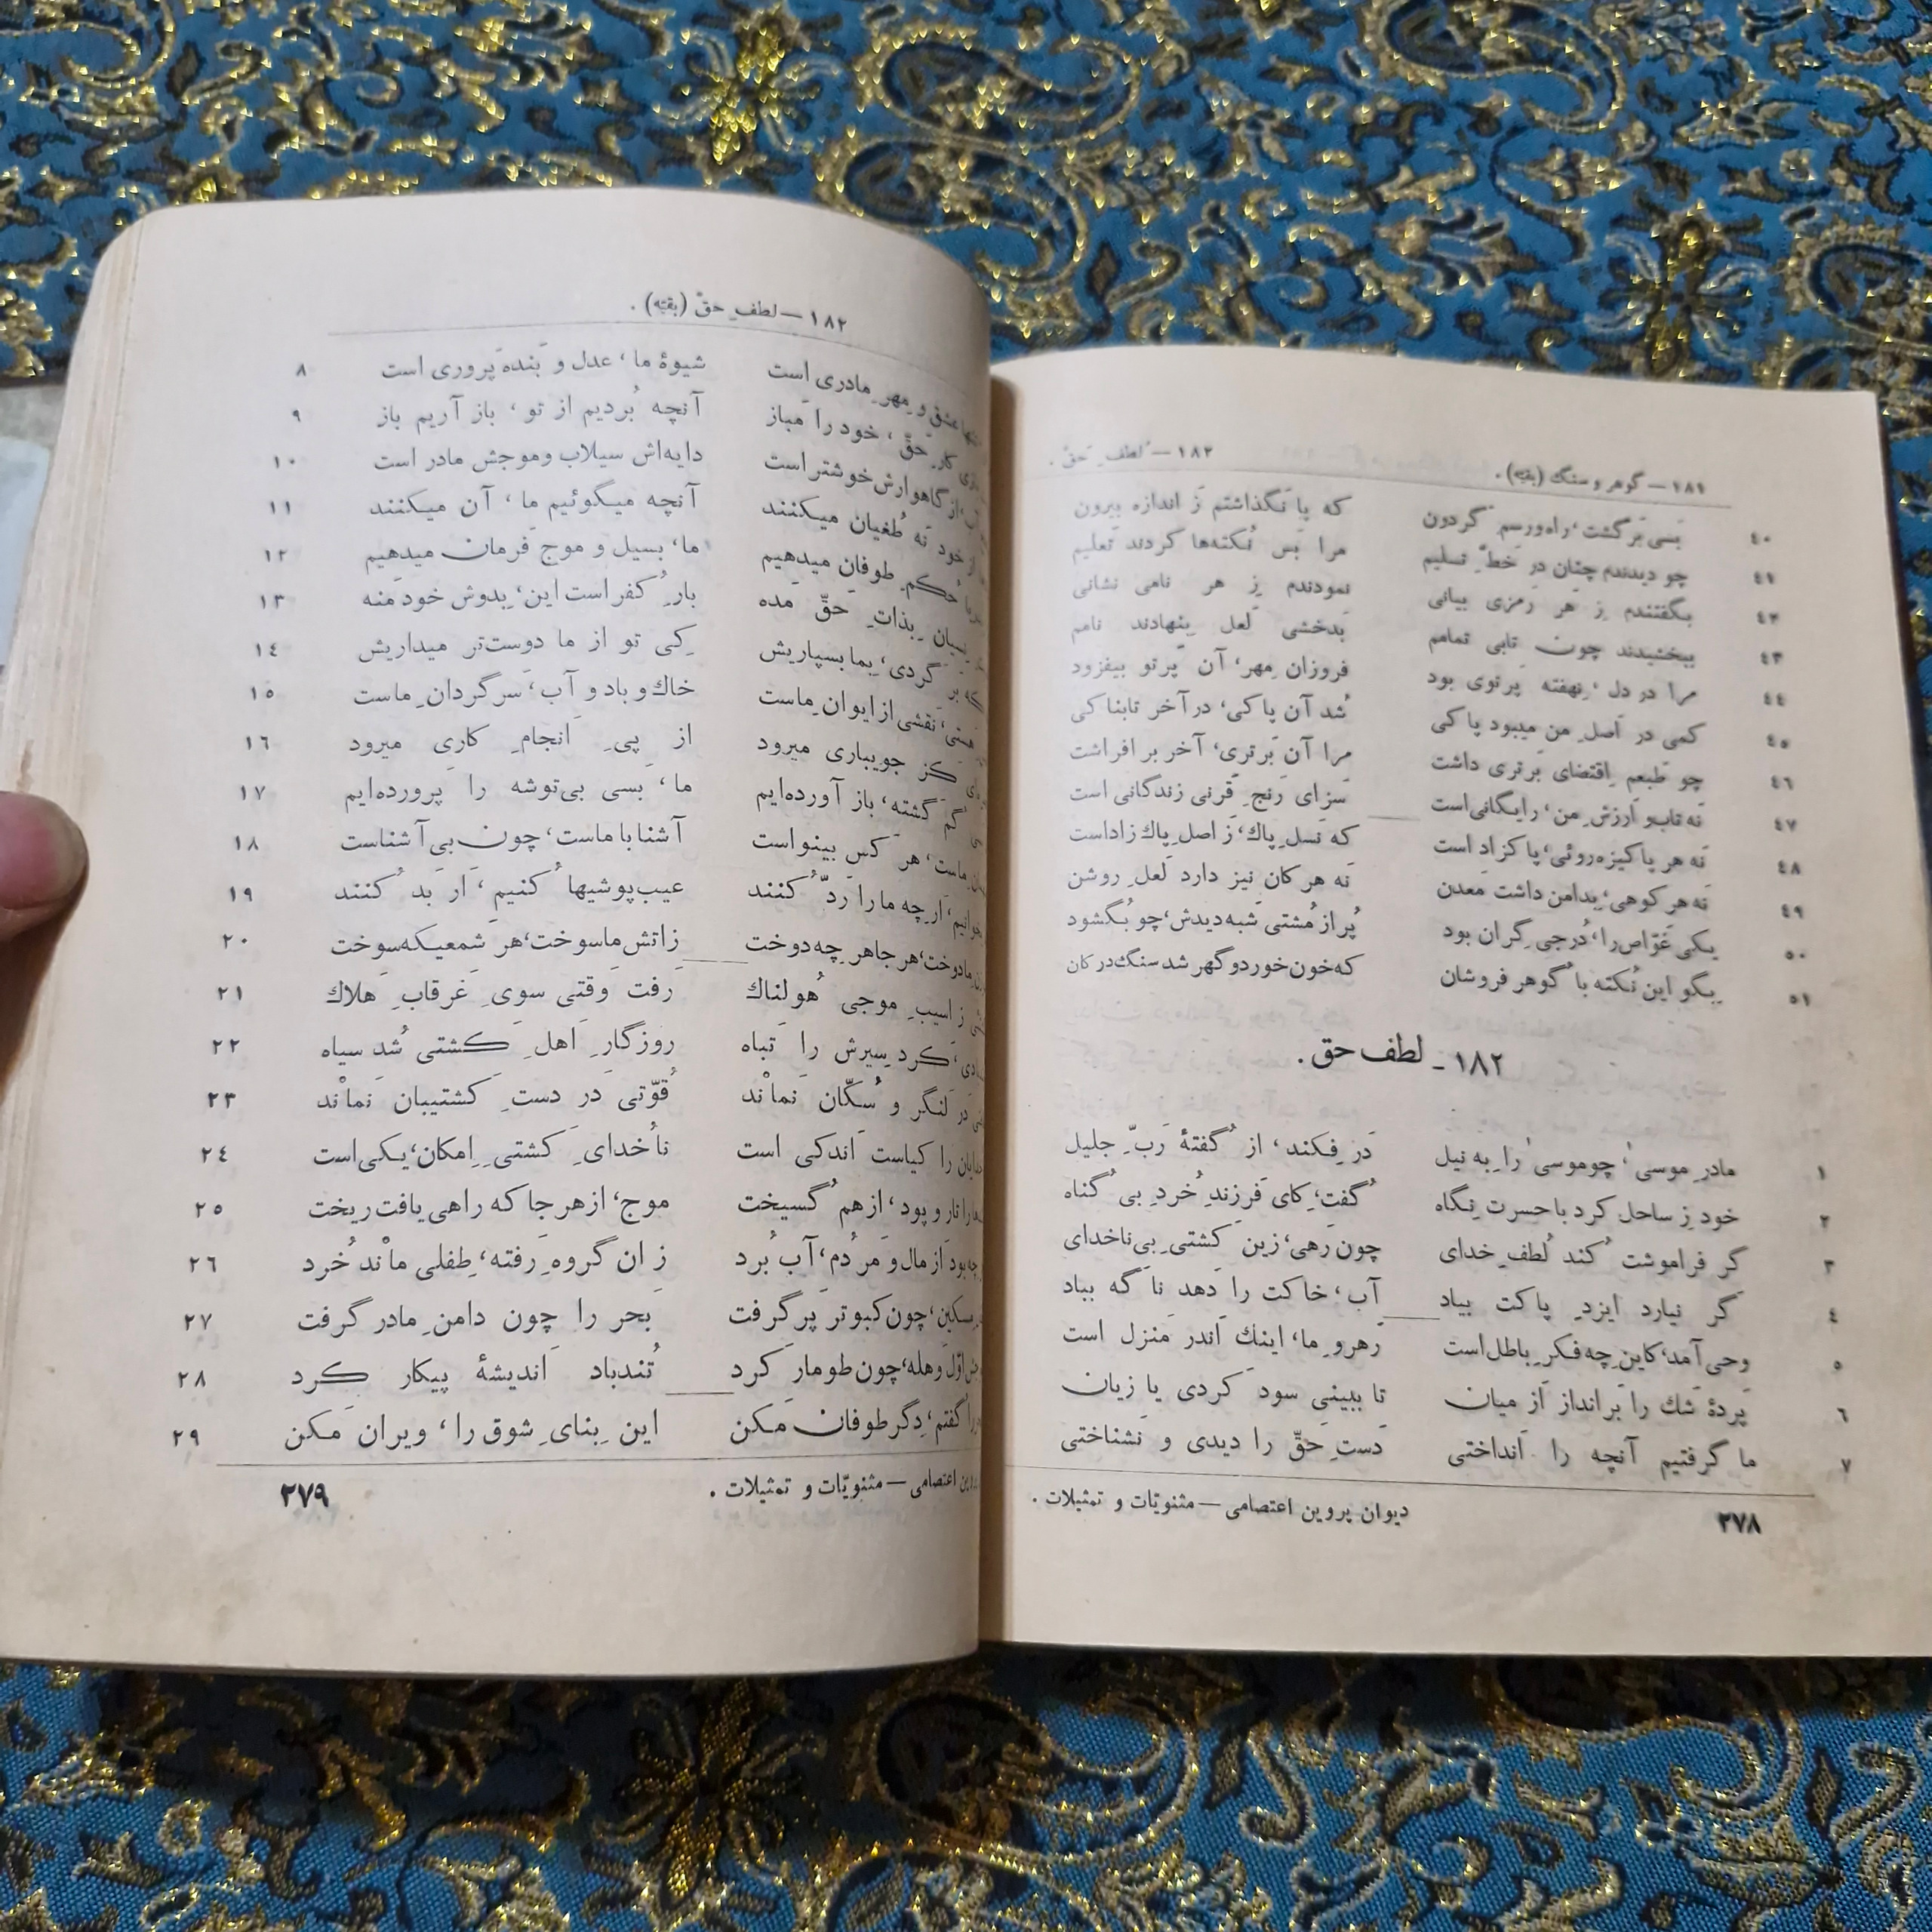 ۱۸۱ — گوهر و سنگ (بقیّه). ۱۸۲ — لُطفِ حَقّ.
٤٠ بَسی بَرگشت، راه‌ورسمِ گردون که پا نَگذاشتم زَ اندازه بیرون
٤١ چو دیدندم چنان در خطِّ تسلیم مرا بَس نُکته‌ها کردند تعلیم
٤٢ بگفتندم زِ هَر رَمزی بیانی نمودندم زِ هر نامی نشانی
٤٣ ببخشیدند چون تابی تمامم بَدخشی لَعل بِنهادند نامم
٤٤ مرا در دل، نِهفته پَرتوی بود فروزان مِهر، آن پَرتو بیفزود
٤٥ کمی در اَصلِ من میبود پاکی شُد آن پاکی، در آخر تابناکی
٤٦ چو طَبعم اِقتضای بَرتری داشت مرا آن بَرتری، آخر بر افراشت
٤٧ نَه تاب‌و اَرزشِ من، رایگانی است سَزای رَنجِ قَرنی زندگانی است
٤٨ نَه هر پاکیزه‌روئی، پاکزاد است که نَسلِ پاك، زَ اصلِ پاك زاداست
٤٩ نَه هر کوهی، بِدامن داشت مَعدن نَه هر کان نیز دارد لَعلِ روشن
٥٠ یکی غَوّاص را، دُرجی گِران بود پُر از مُشتی شَبه دیدش، چو بُگشود
٥١ بِگو این نُکته با گوهر فروشان که خون خورد و گهر شد سنگ در کان
۱۸۲ ـ لطف حق.
١ مادرِ موسیٰ، چو موسیٰ را بِه نیل دَر فِکند، از گُفتهٔ رَبِّ جلیل
٢ خود زِ ساحل کرد با حسرت نِگاه گُفت، کِای فَرزندِ خُردِ بی گُناه
٣ گر فراموشت کُند لُطفِ خدای چون رَهی، زین کَشتیِ بی‌ناخدای
٤ گر نیارد ایزد پاکت بیاد آب، خاکت را دَهد ناگه بباد
٥ وحی آمد، کاین چه فکرِ باطل است رَهروِ ما، اینك اَندر مَنزل است
٦ پَردهٔ شك را بَرانداز اَز میان تا ببینی سود کَردی یا زیان
٧ ما گرفتیم آنچه را اَنداختی دَستِ حَقّ را دیدی و نَشناختی
دیوان پروین اعتصامی — مثنویّات و تمثیلات.
۲۷۸
۱۸۲ — لطفِ حقّ (بقیّه).
٨ عشق و مِهرِ مادری است شیوهٔ ما، عدل و بَنده‌پَروری است
٩ کارِ حَقّ، خود را مَباز آنچه بُردیم از تو، باز آریم باز
١٠ از گاهوارش خوشتر است دایه‌اش سیلاب و موجش مادر است
١١ از خود نَه طُغیان میکنند آنچه میگوئیم ما، آن میکنند
١٢ حُکمِ طوفان میدهیم ما، بسیل و موج فَرمان میدهیم
١٣ بِذاتِ حَقّ مَده بارِ کُفر است این، بِدوش خود مَنِه
١٤ که بر گردی، بِما بسپاریش کِی تو از ما دوست‌تر میداریش
١٥ هستی، نقشی از ایوانِ ماست خاك و باد و آب، سَرگردانِ ماست
١٦ کز جویباری میرود از پیِ اَنجامِ کاری میرود
١٧ گُم گشته، باز آورده‌ایم ما، بَسی بی‌توشه را پَرورده‌ایم
١٨ ماست، هر کَس بینواست آشنا با ماست، چون بی‌آشناست
١٩ اَر چه ما را رَدّ کُنند عیب‌پوشیها کُنیم، اَر بَد کُنند
٢٠ ما دوخت، هر جا هر چه دوخت زاتش ما سوخت، هر شَمعیکه سوخت
٢١ ز آسیبِ موجی هُولناك رَفت وَقتی سویِ غَرقابِ هَلاك
٢٢ کرد سِیرش را تَباه روزگارِ اَهلِ کَشتی شُد سیاه
٢٣ در لَنگر و سُکّان نَمانْد قُوّتی در دستِ کَشتیبان نَمانْد
٢٤ را کیاست اَندکی است ناخُدایِ کَشتیِ اِمکان، یکی است
٢٥ را تار و پود، از هم گُسیخت موج، از هر جا که راهی یافت ریخت
٢٦ چه بود اَز مال و مَردُم، آب بُرد زَ ان گروهِ رَفته، طِفلی مانْد خُرد
٢٧ مسکین، چون کبوتر پَر گرفت بَحر را چون دامنِ مادر گرفت
٢٨ اوّل وَهله، چون طومار کَرد تُندباد اَندیشهٔ پیکار کرد
٢٩ را گفتم، دِگر طوفان مَکن این بِنایِ شوق را، ویران مَکن
اعتصامی — مثنویّات و تمثیلات.
۲۷۹